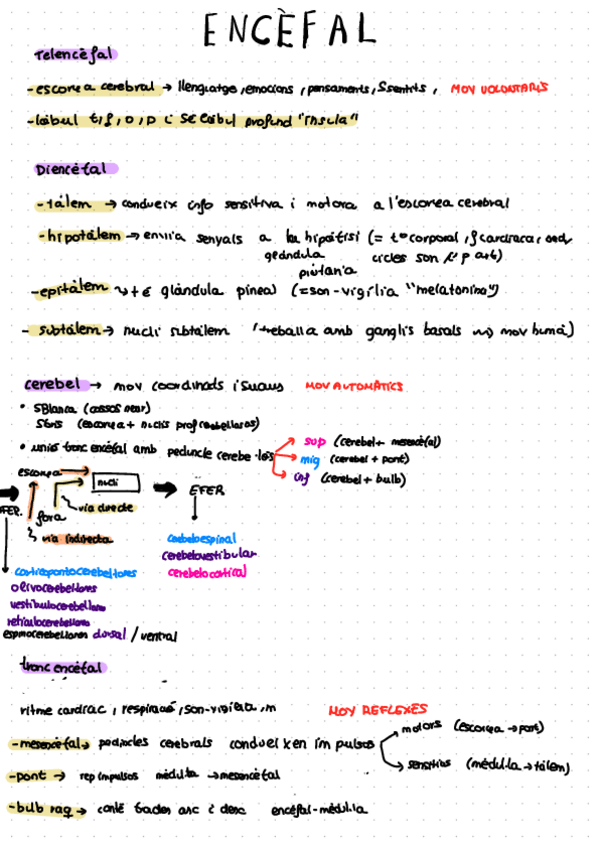 ENCÈFAL
Telencèfal
- escorça cerebral → llenguatge, emocions, pensaments, 5sentits, MOV VOLONTARIS
- lòbul t, f, o, p i 5è lòbul profund "ínsula"
Diencèfal
- tàlem → condueix info sensitiva i motora a l'escorça cerebral
- hipotàlem → envia senyals a la hipófisi (= tº corporal, f cardíaca,
glàndula cicles son
pituïtària
- epitàlem → té glàndula pineal (=son-vigília "melatonina")
- subtàlem → nucli subtàlem (treballa amb ganglis basals → mov humà)
cerebel → mov coordinads i suaus MOV AUTOMÀTICS
• SBlanca (axons neur)
Sgris (escorça + nuclis prof cerebellosos)
• unió tronc encèfal amb peduncle cerebe·losos
sup (cerebel + mesencèfal)
mig (cerebel + pont)
inf (cerebel + bulb)
escorça nucli EFER.
AFER. fora via directe
via indirecta
cerebeloespinal
cerebelovestibular
cerebelocortical
corticopontocerebellores
olivocerebellores
vestibulocerebellores
reticulocerebellores
espinocerebellores dorsal / ventral
tronc encèfal
ritme cardíac, respiració, son-vigília, m MOV REFLEXES
- mesencèfal → peduncles cerebrals condueixen impulsos
motors (escorça → pont)
sensitius (mèdul·la → tàlem)
- pont → rep impulsos mèdul·la → mesencèfal
- bulb raq → conté tractes asc i desc encèfal-mèdul·la